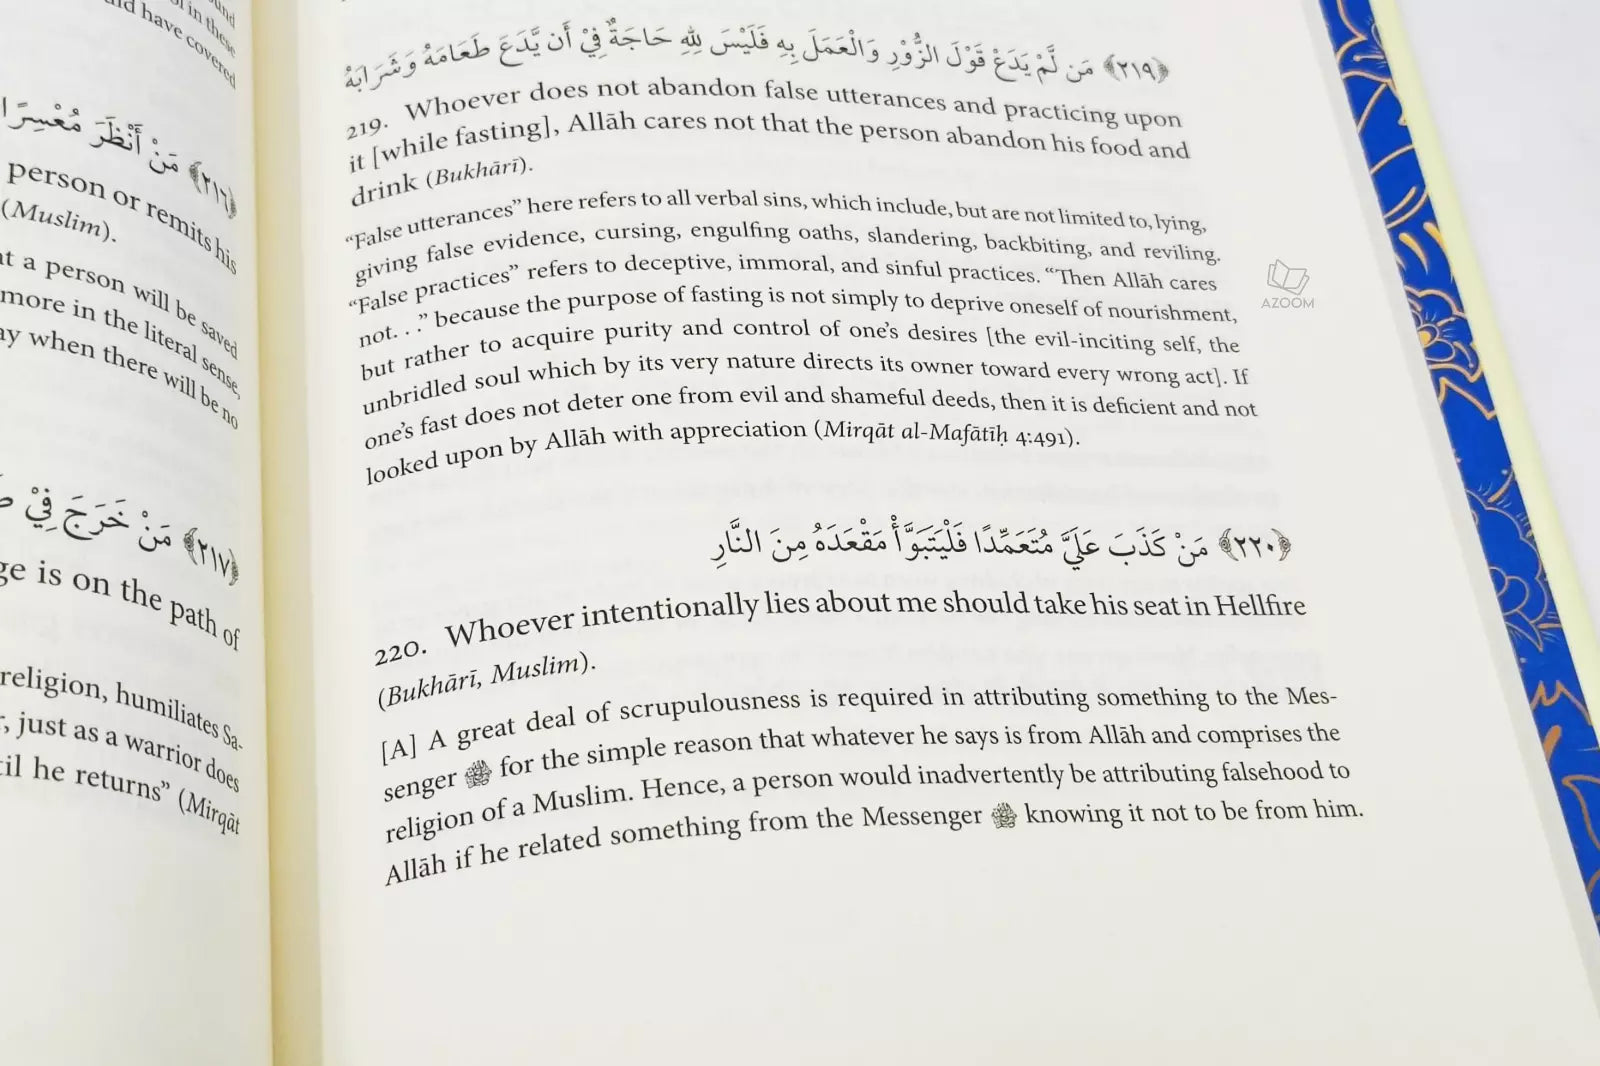 ound
ol in these
ld have covered
﴿٢١٦﴾ مَنْ أَنْظَرَ مُعْسِرًا
person or remits his
(Muslim).
at a person will be saved
more in the literal sense,
ay when there will be no
﴿٢١٧﴾ مَنْ خَرَجَ فِيْ
ge is on the path of
religion, humiliates Sa-
r, just as a warrior does
til he returns” (Mirqāt
﴿٢١٩﴾ مَن لَّمْ يَدَعْ قَوْلَ الزُّوْرِ وَالْعَمَلَ بِهِ فَلَيْسَ لِلهِ حَاجَةٌ فِيْ أَن يَّدَعَ طَعَامَهُ وَشَرَابَهُ
219. Whoever does not abandon false utterances and practicing upon
it [while fasting], Allāh cares not that the person abandon his food and
drink (Bukhārī).
“False utterances” here refers to all verbal sins, which include, but are not limited to, lying,
giving false evidence, cursing, engulfing oaths, slandering, backbiting, and reviling.
“False practices” refers to deceptive, immoral, and sinful practices. “Then Allāh cares
not. . .” because the purpose of fasting is not simply to deprive oneself of nourishment,
but rather to acquire purity and control of one’s desires [the evil-inciting self, the
unbridled soul which by its very nature directs its owner toward every wrong act]. If
one’s fast does not deter one from evil and shameful deeds, then it is deficient and not
looked upon by Allāh with appreciation (Mirqāt al-Mafātīḥ 4:491).
﴿٢٢٠﴾ مَنْ كَذَبَ عَلَيَّ مُتَعَمِّدًا فَلْيَتَبَوَّأْ مَقْعَدَهُ مِنَ النَّارِ
220. Whoever intentionally lies about me should take his seat in Hellfire
(Bukhārī, Muslim).
[A] A great deal of scrupulousness is required in attributing something to the Mes-
senger ﷺ for the simple reason that whatever he says is from Allāh and comprises the
religion of a Muslim. Hence, a person would inadvertently be attributing falsehood to
Allāh if he related something from the Messenger ﷺ knowing it not to be from him.
AZOOM